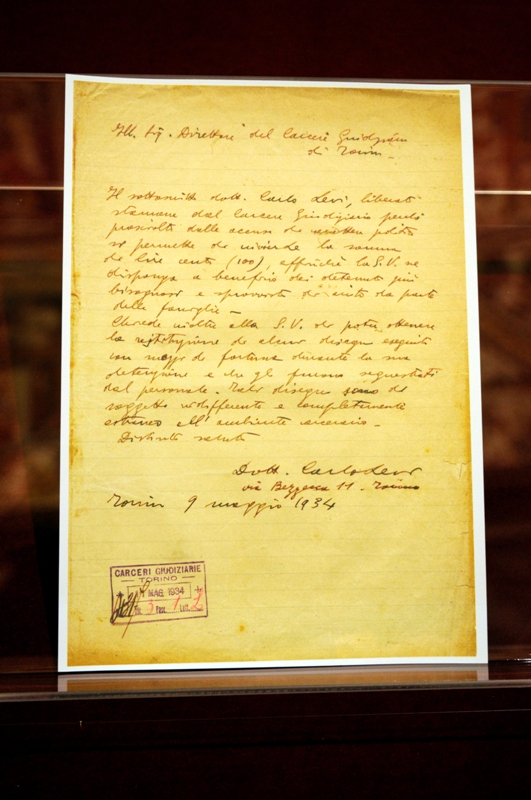 Ill. Sig. Direttore del Carcere Giudiziario
di Torino -
Il sottoscritto dott. Carlo Levi, liberato
stamane dal Carcere Giudiziario perché
prosciolto dalle accuse
si permette di inviarle la somma
di lire cento (100), affinché la S.V. ne
disponga a beneficio dei detenuti più
bisognosi e sprovvisti di aiuto da parte
delle famiglie -
Chiede inoltre alla S.V. di poter ottenere
la restituzione di alcuni disegni eseguiti
con durante la sua
detenzione e che gli furono sequestrati
dal personale. Tali disegni sono di
soggetto indifferente e completamente
estraneo all'ambiente carcerario -
Distinti saluti
Dott. Carlo Levi
via Bezzecca 11 - Torino
Torino 9 maggio 1934
CARCERI GIUDIZIARIE
TORINO
MAG. 1934